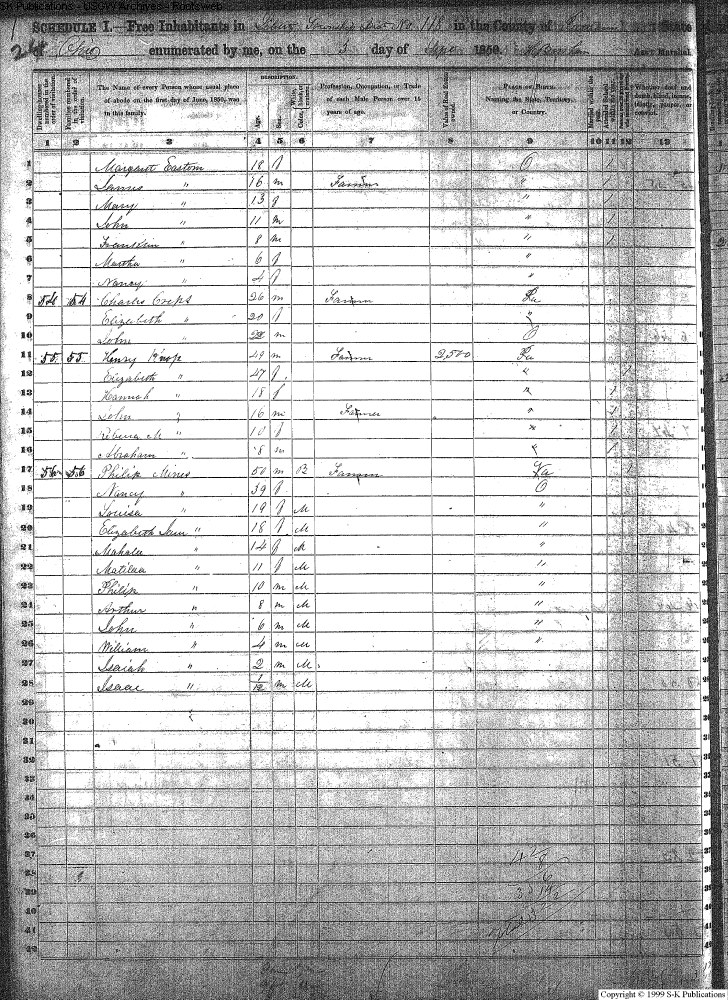 S-K Publications - USGW Archives - Rootsweb
SCHEDULE I.—Free Inhabitants in Township No 118 in the County of State
of Ohio enumerated by me, on the 3 day of 1850. Ass't Marshal.
Dwelling-houses numbered in the order of visitation.
Families numbered in the order of visitation.
The Name of every Person whose usual place of abode on the first day of June, 1850, was in this family.
DESCRIPTION.
Age.
Sex.
White, Color, black, or mulatto.
Profession, Occupation, or Trade of each Male Person over 15 years of age.
Value of Real Estate owned.
PLACE OF BIRTH. Naming the State, Territory, or Country.
Married within the year.
Whether deaf and dumb, blind, insane, idiotic, pauper, or convict.
1 2 3 4 5 6 7 8 9 10 11 12 13
1 Margaret Eastom 18 f O 1
2 James " 16 m Farmer " 1
3 Mary " 13 f " 1
4 John " 11 m " 1
5 Franklin " 8 m " 1
6 Martha " 6 f "
7 Nancy " 4 f "
8 54 54 Charles Creps 26 m Farmer Pa
9 Elizabeth " 20 f "
10 John " m O
11 55 55 Henry Knop 49 m Farmer 2,500 Pa
12 Elizabeth " 47 f " 1
13 Hannah " 18 f " 1
14 John " 16 m Farmer " 1
15 Rebecca M " 10 f " 1
16 Abraham " 8 m " 1
17 56 56 Philip Mines 50 m B Farmer Va 1
18 Nancy " 39 f O
19 Louisa " 19 f M "
20 Elizabeth Jane " 18 f M "
21 Mahala " 14 f M "
22 Matilda " 11 f M "
23 Philip " 10 m M "
24 Arthur " 8 m M "
25 John " 6 m M "
26 William " 4 m M "
27 Isaiah " 2 m M
28 Isaac " 1/12 m M
29
30
31
32
33
34
35
36
37
38
39
40
41
42
Copyright © 1999 S-K Publications